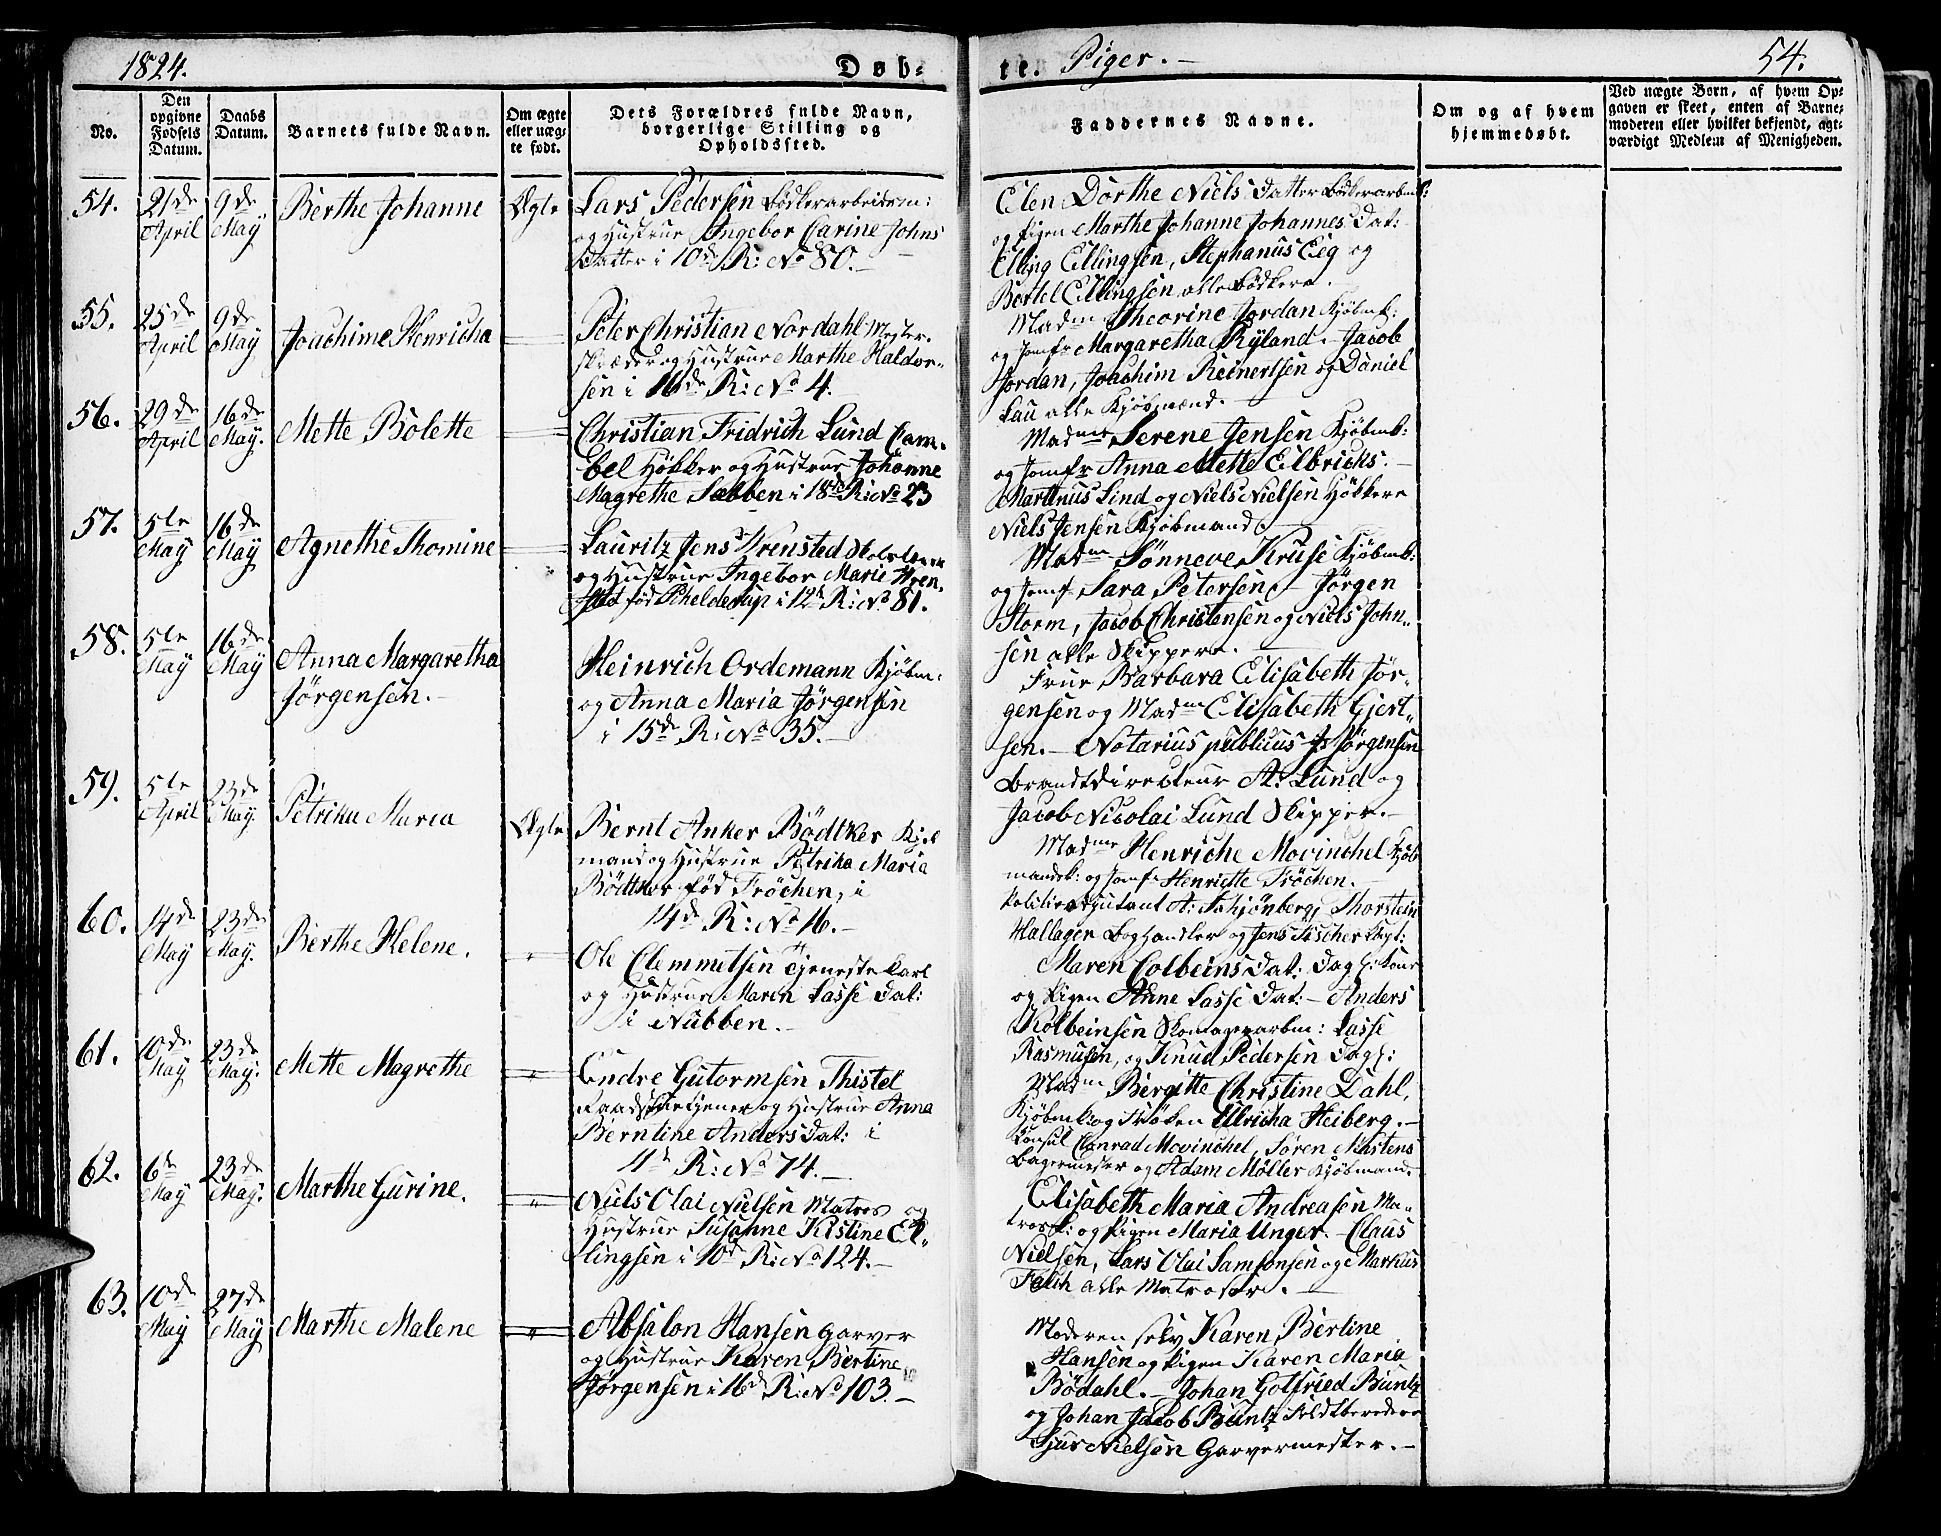 1824.
Døb-
te. Piger. -
54.
No.
Den
opgivne
Fødsels
Datum.
Daabs
Datum.
Barnets fulde Navn.
Om ægte
eller uæg-
te født.
Dets Forældres fulde Navn,
borgerlige Stilling og
Opholdssted.
Faddernes Navne.
Om og af hvem
hjemmedøbt.
Ved uægte Børn, af hvem Op-
gaven er skeet, enten af Barne-
moderen eller hvilket bekjendt, agt-
værdigt Medlem af Menigheden.
54. 21de April 9de May Berthe Johanne Ægte
Lars Pedersen Bødkerarbeidsm:
og Hustrue Ingebor Carine Johns
Datter i 10de R: No 80. -
Elen Dorthe Niels Datter
og Pigen Marthe Johanne Johannes Dat:
Elling Ellingsen, Stephanus Eeg og
Bertel Ellingsen alle Bødkere.
55. 25de April 9de May Joachime Henricha
Peter Christian Nordahl Mester-
skræder og Hustrue Marthe Haldor-
sen i 16de R: No 4.
Madme Theorine Jordan Kjøbmk:
og Jomfr Margaretha Ryland. - Jacob
Jordan, Joachim Reinertsen og Daniel
Lau alle Kjøbmænd. -
56. 29de April 16de May. Mette Bolette
Christian Fridrich Lund Cam-
bel Høkker og Hustrue Johanne
Magrethe Sæbben i 18de R: No 23
Madme Serene Jensen Kjøbmk:
og Jomfr Anna Mette Elbricks. -
Martinus Lind og Niels Nielsen Høkkere
Niels Jensen Kjøbmand. -
57. 5te May 16de May Agnethe Thomine
Lauritz Jens Wrensted
og Hustrue Ingebor Marie Wren-
sted fød Schelderup i 12te R: No 81.
Madme Sønneve Kruse Kjøbmk:
og Jomf Sara Petersen. - Jørgen
Storm, Jacob Christensen og Niels John-
sen alle Skippere. -
58. 5te May 16de May Anna Margaretha
Jørgensen. -
Heinrich Ordemann Kjøbm:
og Anna Maria Jørgensen
i 15de R: No 35. -
Frue Barbara Elisabeth Jør-
gensen og Madme Elisabeth Gjert-
sen. - Notarius publicus Js Jørgensen
Brandtdirecteur A. Lund og
Jacob Nicolai Lund Skipper. -
59. 5te April 23de May. Petrika Maria Ægte
Bernt Anker Bødtker Kjøb
mand og Hustrue Petrika Maria
Bødtker fød Frøchen, i
14de R: No 16. -
Madme Henriche Mowinchel Kjøb
mandsk: og Jomfr Henriette Frøchen. -
Politieadjutant A: Schjønberg, Thorstein
Hallager Boghandler og Jens Fischer
60. 14de May 23de May. Berthe Helene. "
Ole Clemmetsen Tjenestekarl
og Hustrue Maren Lasse Dat:
i Nubben. -
Maren Colbeins Dat: Dagk: Kone
og Pigen Anne Lasse Dat: - Anders
Kolbeinsen Skomagerarbm: Lasse
Rasmusen, og Knud Pedersen Dagk:
61. 10de May 23de May. Mette Magrethe "
Endre Gutormsen Thistel
Raadstuetjener og Hustrue Anna
Berntine Anders Dat: i
11te R: No 74. -
Madme Bergitte Christine Dahl,
Kjøbmk: og Frøken Ullricha Heiberg. -
Konsul Conrad Mowinchel, Søren Mustens
Bagermester og Adam Møller Kjøbmand.
62. 6te May 23de May. Marthe Gurine. "
Niels Olai Nielsen Matros og
Hustrue Susanne Kistine El-
lingsen i 10de R: No 124. -
Elisabeth Maria Andreasen Ma-
trosk: og Pigen Maria Unger. - Claus
Nielsen, Lars Olai Samsonsen og Markus
Falch alle Matroser. -
63. 10de May 27de May Marthe Malene "
Absalon Hansen Garver
og Hustrue Karen Bertine
Jørgensen i 16de R: No 103. -
Moderen selv Karen Bertine
Hansen og Pigen Karen Maria
Bødahl. - Johan Gotfried Buntz
og Johan Jacob Buntz Feldtberedere
Sjur Nielsen Garvermester. -